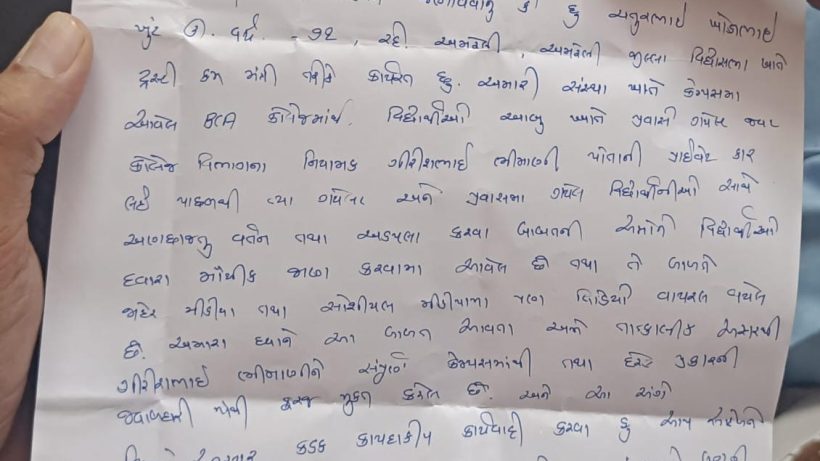 જણાવવાનું કે હું ચતુરભાઈ ખોડાભાઈ
ખુંટ ઉ. વર્ષ. -૭૨, રહે. અમરેલી, અમરેલી જીલ્લા વિદ્યાસભા ખાતે
ટ્રસ્ટી કમ મંત્રી તરીકે કાર્યરત છુ. અમારી સંસ્થા ખાતે કેમ્પસમા
આવેલ BCA કોલેજમાંથી વિદ્યાર્થીઓ આબુ ખાતે પ્રવાસે ગયેલ જ્યા
કોલેજ વિભાગના નિયામક ગીરીશભાઈ ભીમાણી પોતાની પ્રાઈવેટ કાર
લઈ પાછળથી ત્યા ગયેલ અને પ્રવાસમા ગયેલ વિદ્યાર્થીનીઓ સાથે
અણછાજતુ વર્તન તથા અડપલા કરવા બાબતની અમોને વિદ્યાર્થીઓ
દ્વારા મૌખીક જાણ કરવામા આવેલ છે તથા તે બાબતે
જાહેર મીડીયા તથા સોશીયલ મીડીયામા પણ વિડિયો વાયરલ થયેલ
છે. અમારા ધ્યાને આ બાબત આવતા અમે તાત્કાલીક અસરથી
ગીરીશભાઈ ભીમાણીને સંપુર્ણ કેમ્પસમાંથી તથા દરેક પ્રકારની
જવાબદારી માંથી ફરજ મુક્ત કરેલ છે. અને આ અંગે
કડક કાયદાકીય કાર્યવાહી કરવા હું આપ